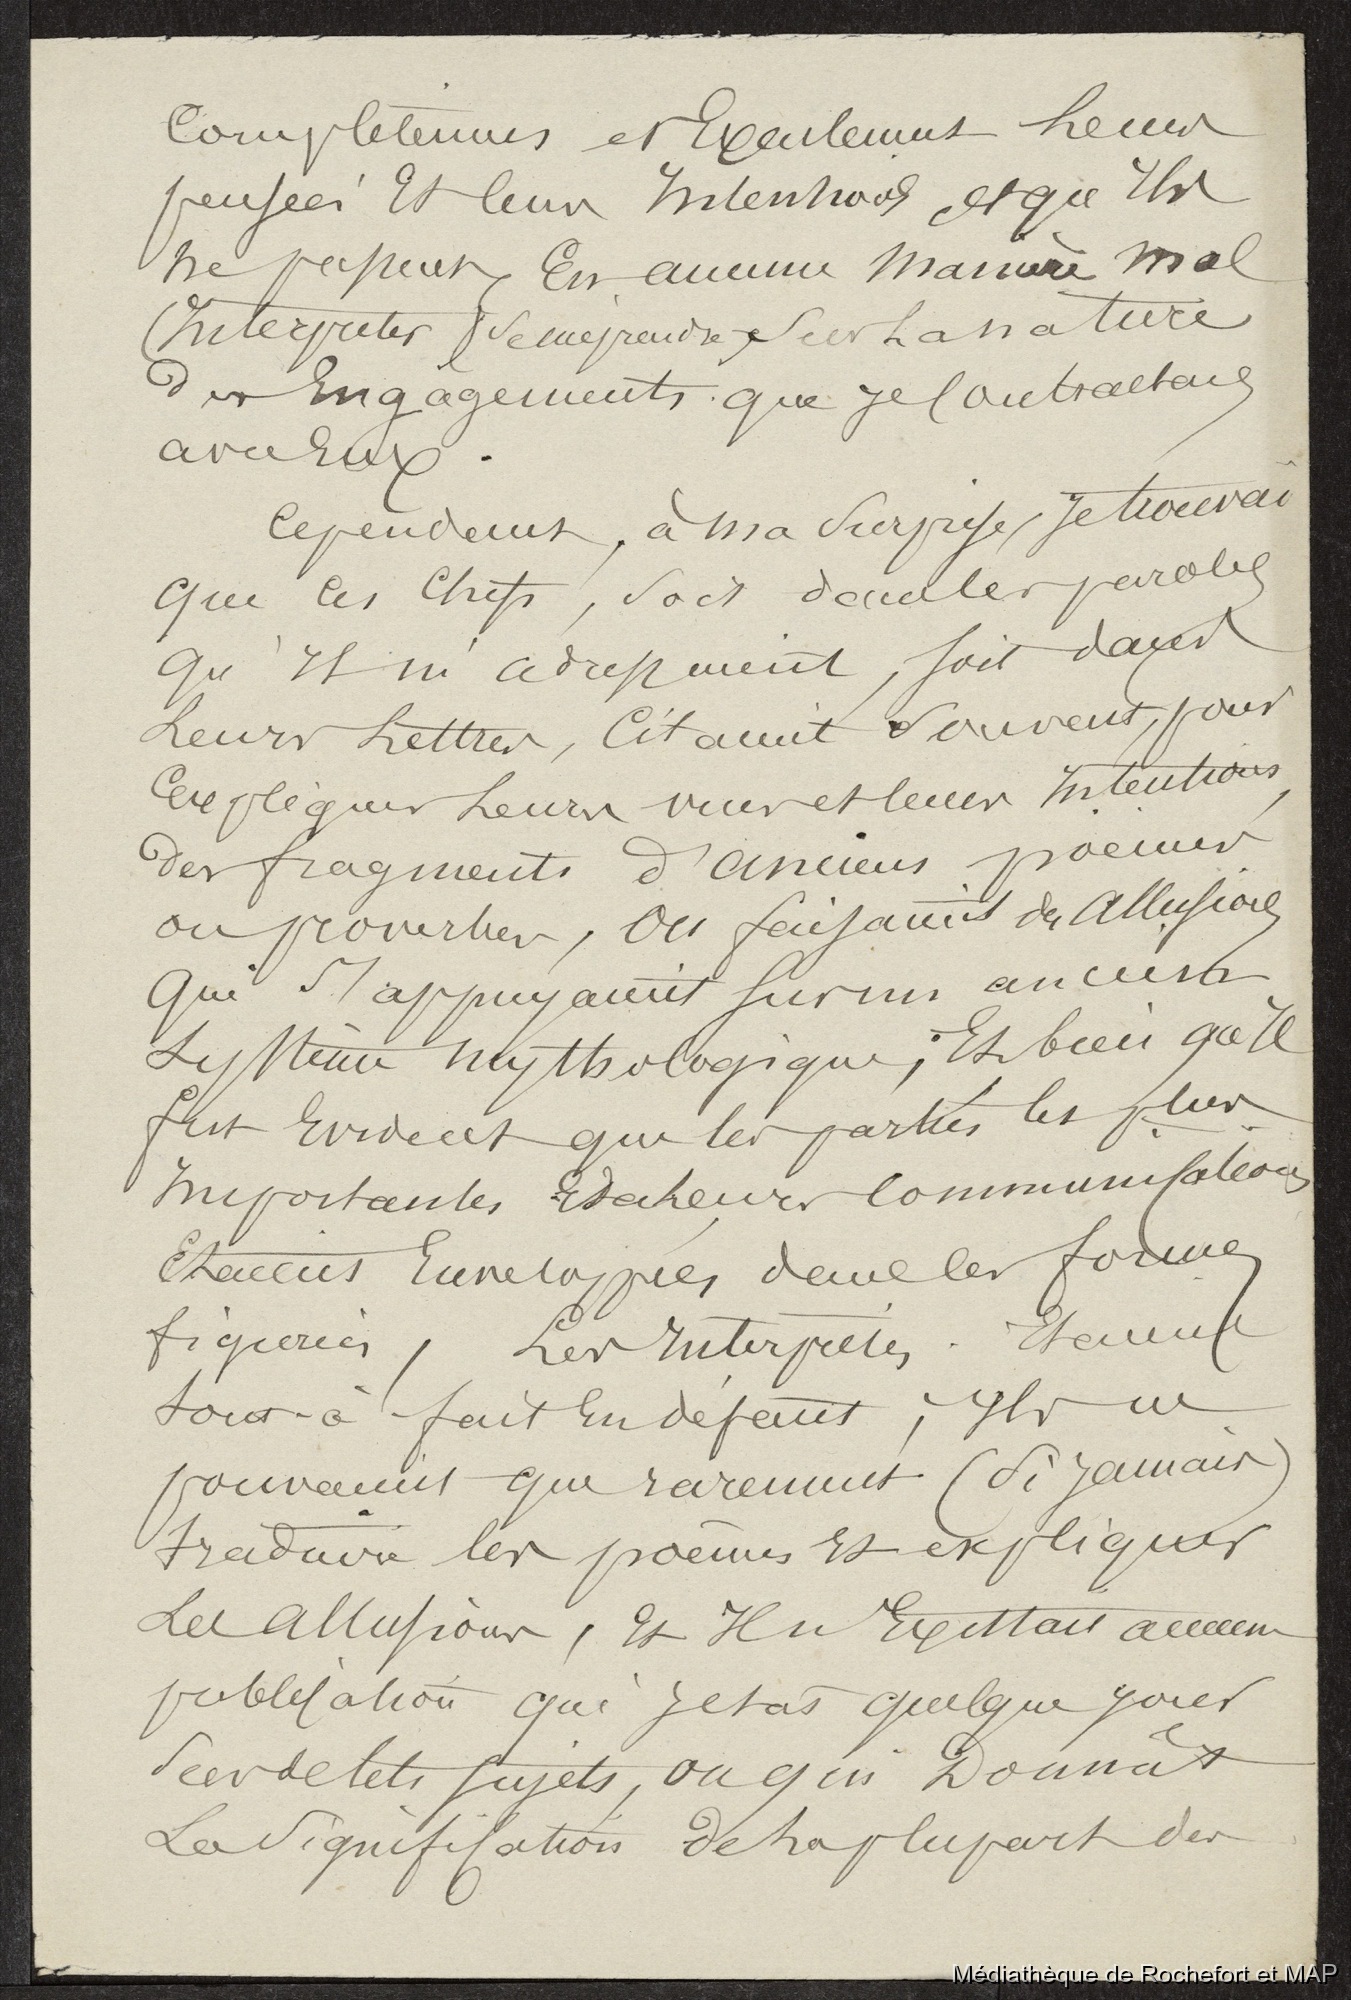 Complétement et Exactement Leurs
pensées Et leurs Intentions, et que Ils
ne pussent, En aucune Manière mal
(Interpreter) Se méprendre, Sur La nature
Des Engagements que je Contractais
avec Eux.
Cependant, à Ma Surprise, je trouvai
que les Chefs, Soit dans les paroles
qu'Ils m'adressaient, soit dans
Leurs Lettres, Citaient Souvent, pour
Expliquer Leurs vues et leurs Intentions,
Des fragments d'anciens poèmes
ou proverbes, Ou faisaient des Allusions
Qui S'appuyaient sur un ancien
Système Mythologique; Et bien qu'Il
fut Evident que les parties les plus
Importantes De Leurs Communications
Etaient Enveloppées dans les formes
figurées, Les Interprètes Etaient
tout-à-fait En défaut, Ils ne
pouvaient que rarement (Si jamais)
traduire les poèmes Et expliquer
Les Allusions, Et Il n'Existait aucune
publication qui jetat quelque jour
Sur de tels sujets, ou qui Donnât
La Signification De La plupart des
Médiathèque de Rochefort et MAP